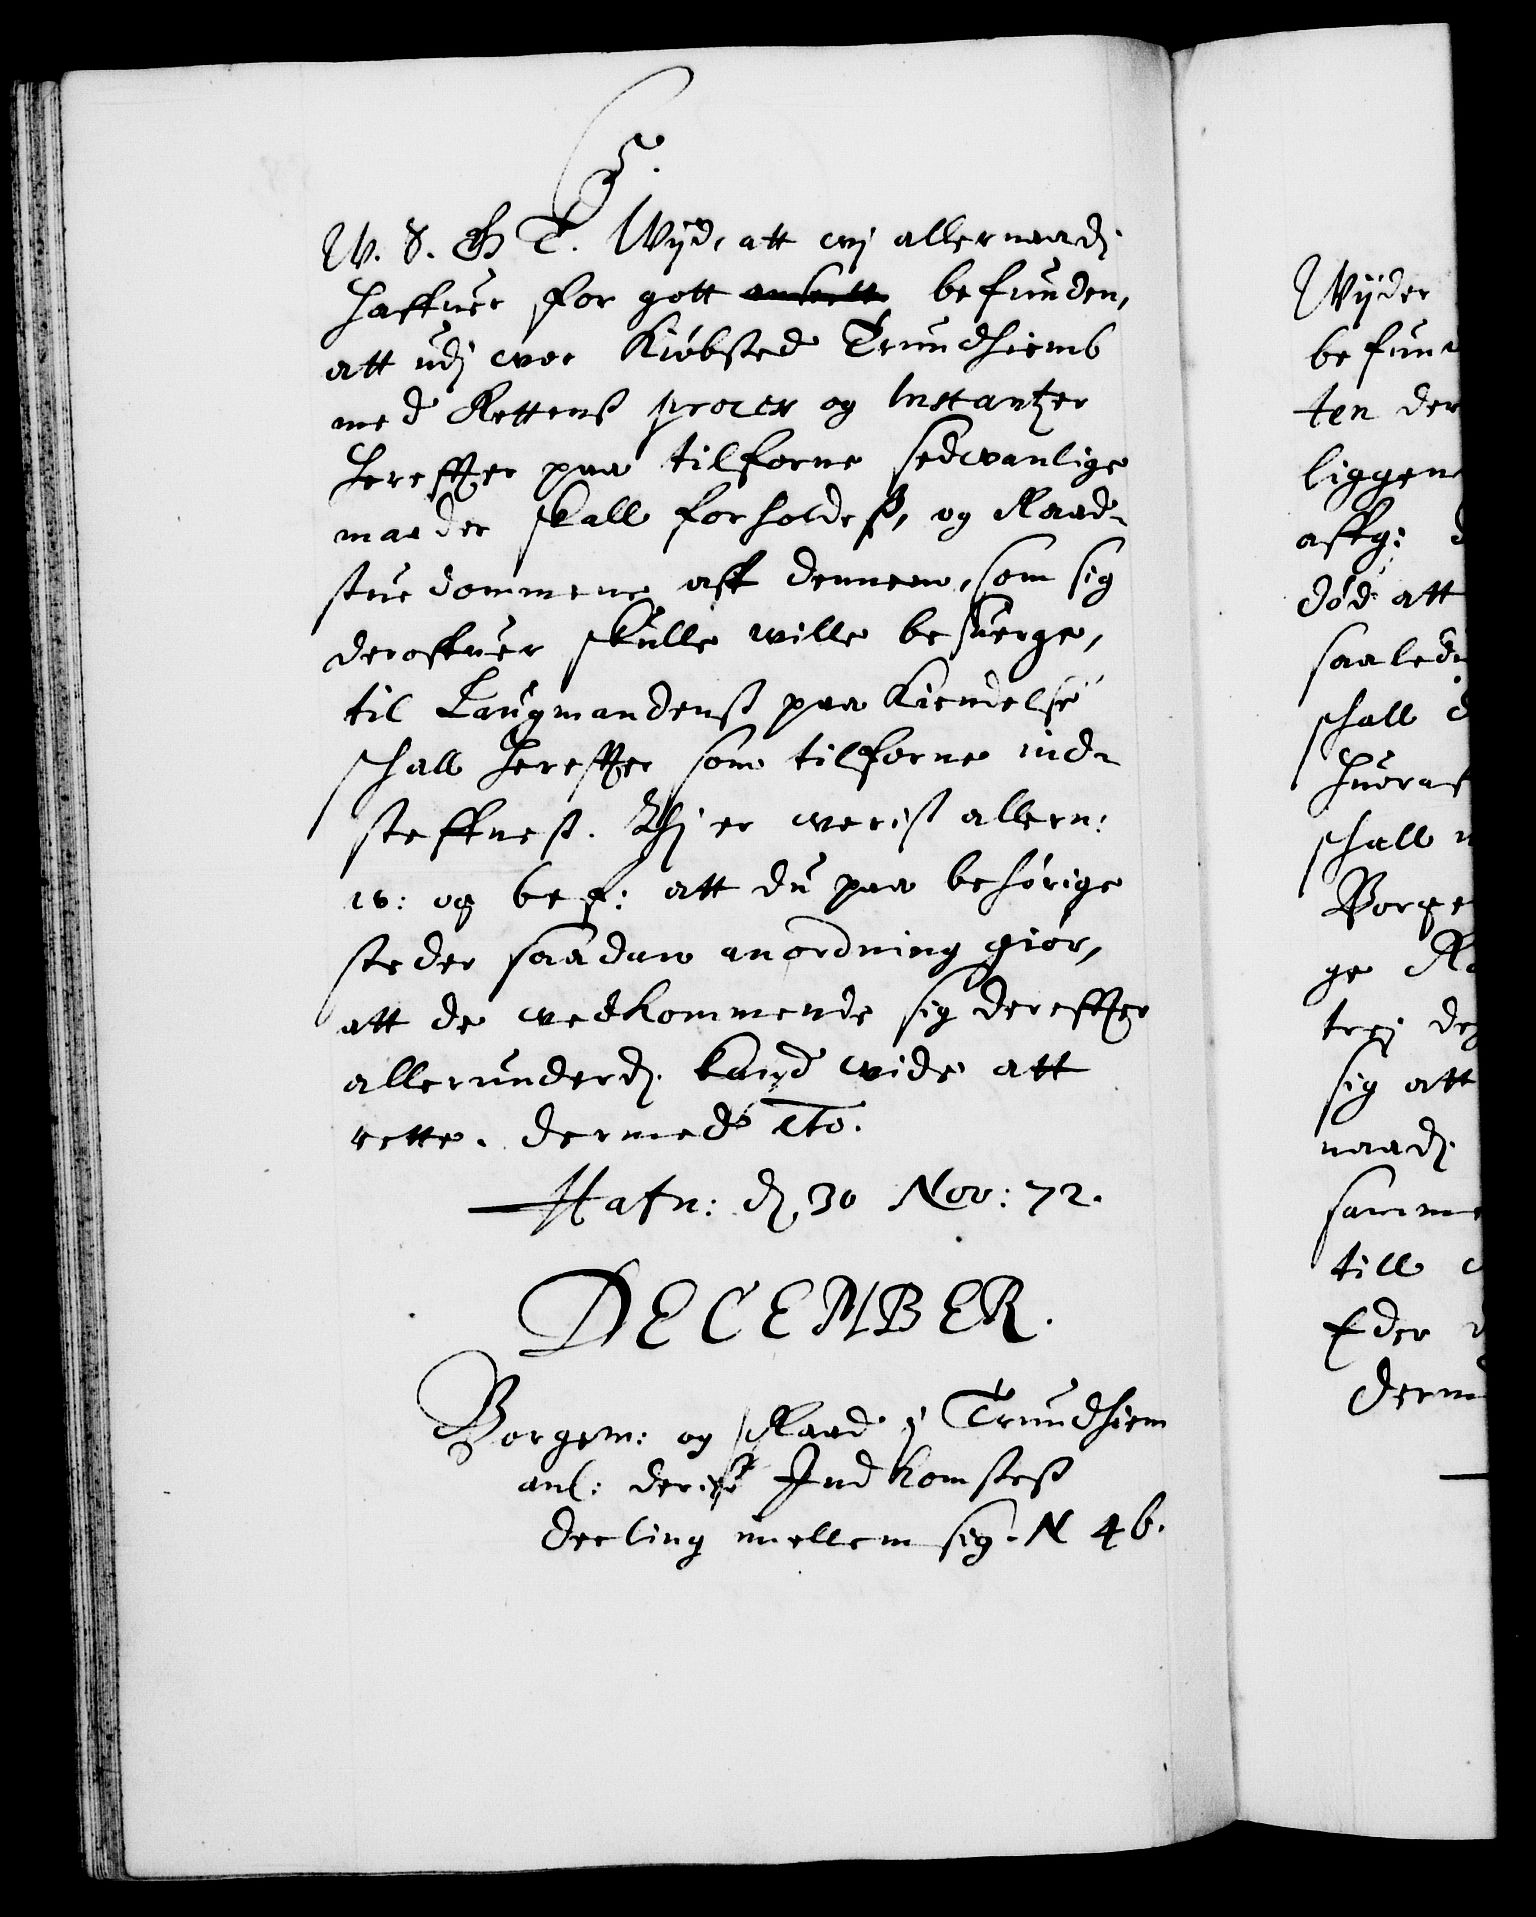 W. S. G T. Wijd, att wj allernaadj.
haffuer for gott ansett befunden,
att udj wor Kiöbsted Trundhiemb
med Rettens proces og Instantzer
hereffter paa tilforne sedwanlige
maader skall forholdeß, og Raad-
stue dommene aff dennem, som sig
deroffuer skulle wille besuerge,
til Laugmandenß paa Kiendelse
schall hereffter som tilforne ind-
steffneß. Thj er worist allern:
w: og bef: att du paa behörige
steder saadan anordning giör,
att de wedkommende sig dereffter
allerunderdj. kand wide att
rette. dermed etc.
Hafn: dj 30 Nov: 72.
DECEMBER.
Borgem: og Raad j Trundhiem
anl: deriß Indkomsteß
deeling mellem sig. N 46.
Wijder
befun
ten der
liggen
affg:
död att
saaled
schall
huoraf
schall
Borge
ge
trej
sig att
naadj.
samme
till
Eder
Derm